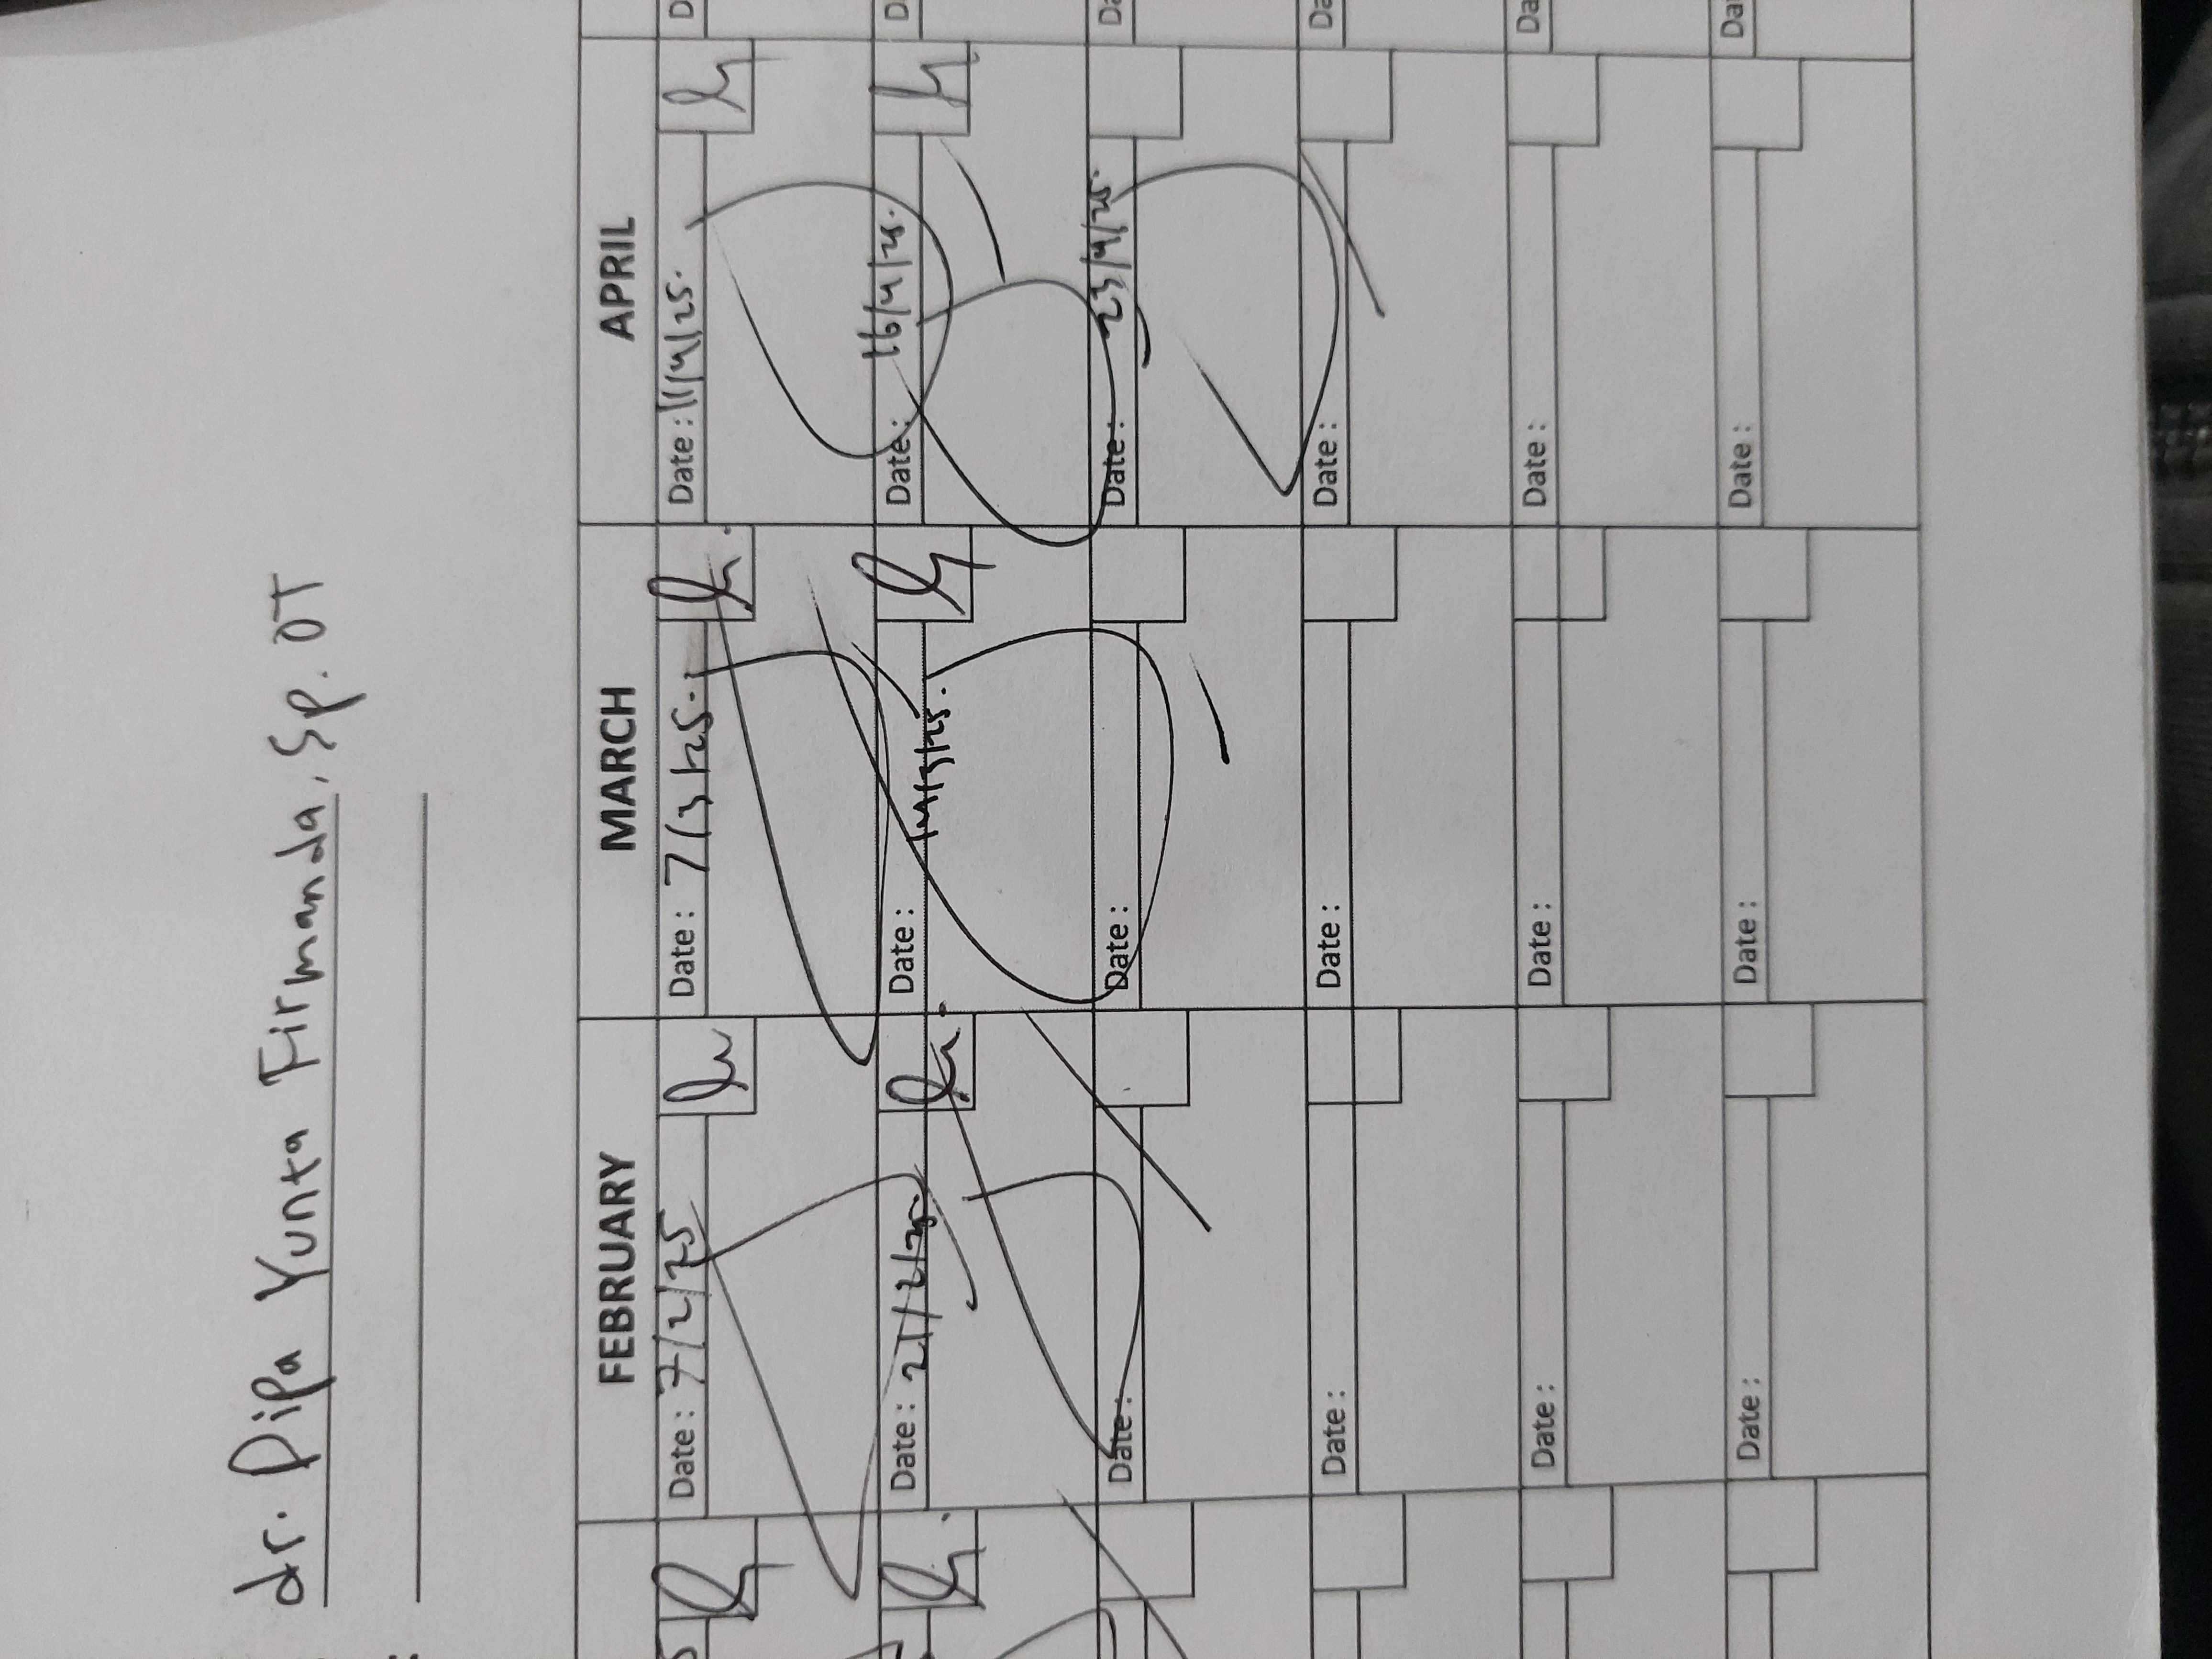 dr. Dipa Yunta Firmanda, Sp. OT
:
FEBRUARY MARCH APRIL
Date : 7/2/25 Date : 7/3/25. Date : 11/4/25. D
Date : 21/2/25 Date : 14/3/25. Date : 16/4/25. D
Date : Date : Date : 23/4/25. Da
Date : Date : Date : Da
Date : Date : Date : Da
Date : Date : Date : Da